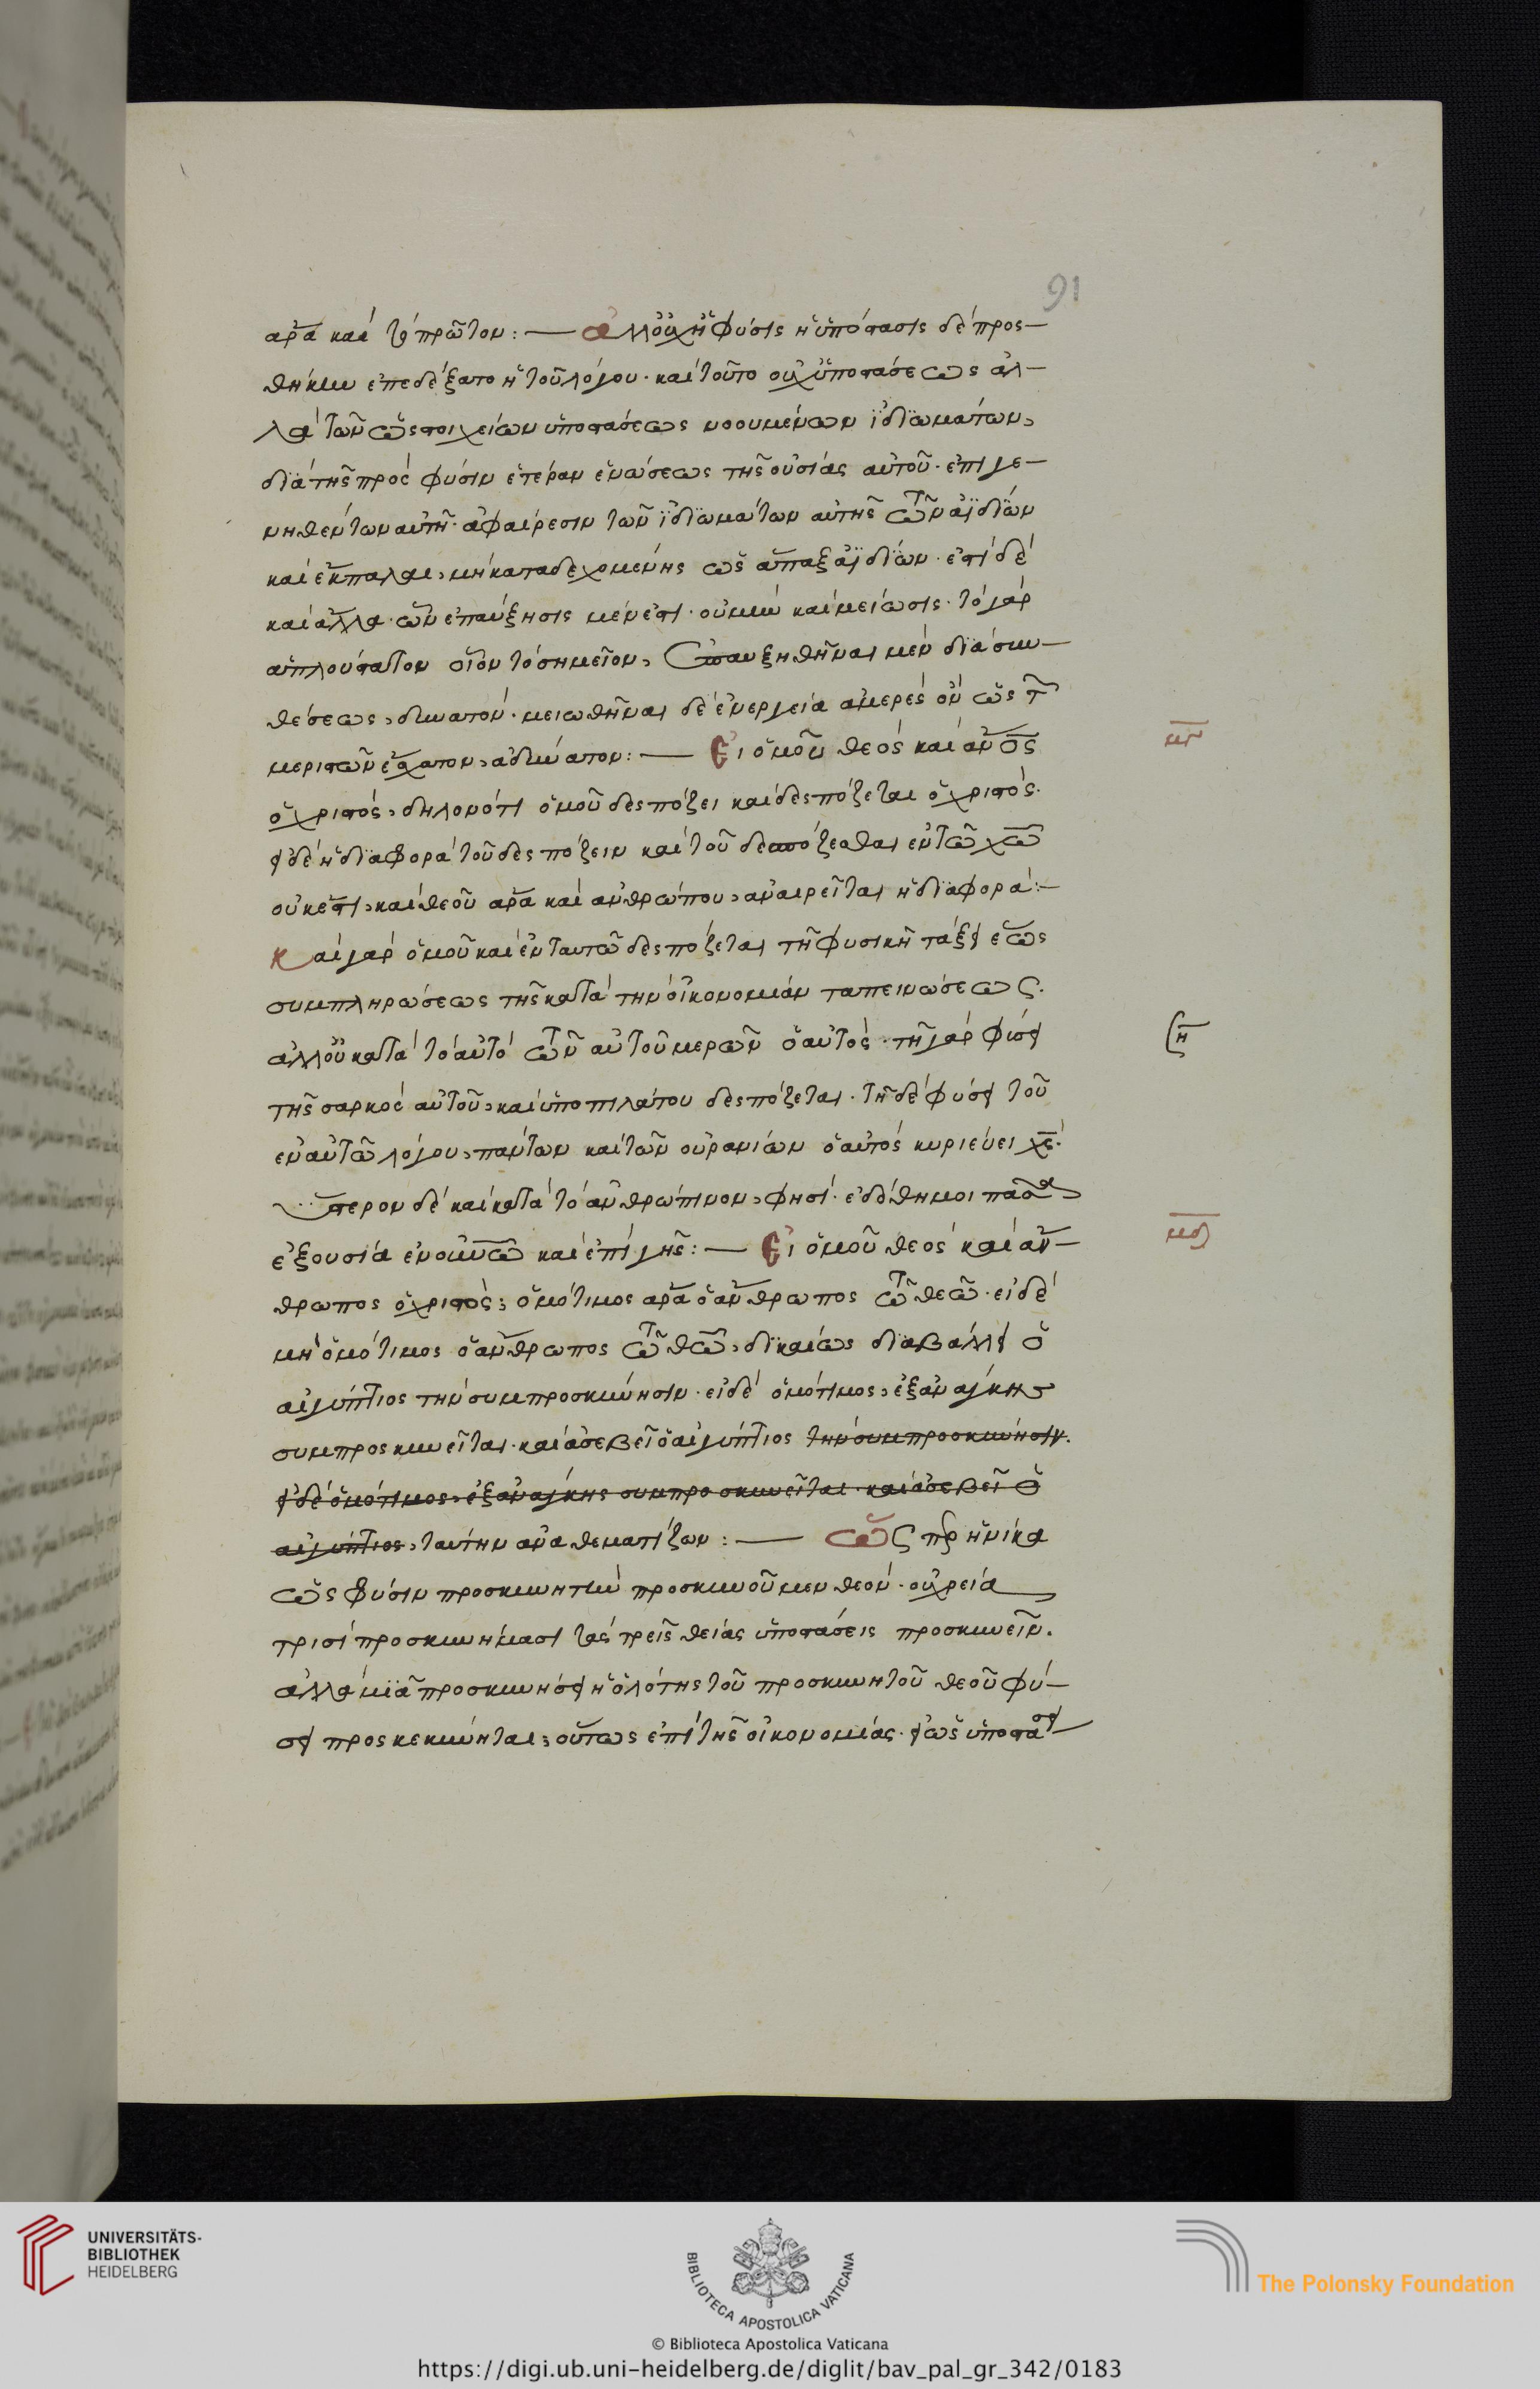 91
ἄρα καὶ τὸ πρῶτον: — ἀλλ' οὐχ ἡ φύσις ἢ ὑπόστασις δὲ προσ–
θήκην ἐπεδέξατο ἡ τοῦ λόγου· καὶ τοῦτο οὐχ ὑποστάσεως ἀλ–
λὰ τῶν ὡς στοιχείων ὑποστάσεως νοουμένων ἰδιωμάτων,
διὰ τῆς πρὸς φύσιν ἑτέραν ἑνώσεως τῆς οὐσίας αὐτοῦ· ἐπιγε–
νηθέντων αὐτῇ· ἀφαίρεσιν τῶν ἰδιωμάτων αὐτῆς τῶν ἀϊδίων
καὶ ἔκπαλαι, μὴ καταδεχομένης ὡς ἅπαξ ἀϊδίων· ἔτι δὲ
καὶ ἄλλα· ὧν ἐπαύξησις μέν ἐστι· οὐ μὴν καὶ μείωσις· τὸ γὰρ
ἁπλούστατον οἷον τὸ σημεῖον, ἐπαυξηθῆναι μὲν διὰ συν–
θέσεως, δυνατόν· μειωθῆναι δὲ ἐνεργεία ἀμερὲς ὂν ὡς τῶν
μεριστῶν ἔσχατον, ἀδύνατον: — Εἰ ὁμοῦ θεὸς καὶ ἄνος
μγ
ὁ χριστός, δηλονότι ὁμοῦ δεσπόζει καὶ δεσπόζεται ὁ χριστός·
εἰ δὲ ἡ διαφορὰ τοῦ δεσπόζειν καὶ τοῦ δεσπόζεσθαι ἐν τῶ χῶ
οὐκ ἔστι, καὶ θεοῦ ἄρα καὶ ἀνθρώπου, ἀναιρεῖται ἡ διαφορά:–
Καὶ γὰρ ὁμοῦ καὶ ἐν ταυτῶ δεσπόζεται τῆ φυσικῆ τάξει ἕως
συμπληρώσεως τῆς κατὰ τὴν οἰκονομίαν ταπεινώσεως.
ἀλλ' οὐ κατὰ τὸ αὐτὸ τῶν αὐτοῦ μερῶν ὁ αὐτός· τῆ γὰρ φύσει
τῆς σαρκὸς αὐτοῦ, καὶ ὑπὸ πιλάτου δεσπόζεται· τῆ δὲ φύσει τοῦ
ἐν αὐτῶ λόγου, πάντων καὶ τῶν οὐρανίων ὁ αὐτὸς κυριεύει χς·
ὕστερον δὲ καὶ κατὰ τὸ ἀνθρώπινον, φησί· ἐδόθη μοι πᾶσα
ἐξουσία ἐν οὐνῶ καὶ ἐπὶ γῆς: — Εἰ ὁμοῦ θεὸς καὶ ἄν–
μδ
θρωπος ὁ χριστός, ὁμότιμος ἄρα ὁ ἄνθρωπος τῶ θεῶ· εἰ δὲ
μὴ ὁμότιμος ὁ ἄνθρωπος τῶ θῶ, δικαίως διαβάλλει ὁ
αἰγύπτιος τὴν συμπροσκύνησιν· εἰ δὲ ὁμότιμος, ἐξ ἀνάγκης
συμπροσκυνεῖται· καὶ ἀσεβεῖ ὁ αἰγύπτιος τὴν συμπροσκύνησιν.
εἰ δὲ ὁμότιμος, ἐξ ἀνάγκης συμπροσκυνεῖται· καὶ ἀσεβεῖ ὁ
αἰγύπτιος, ταύτην ἀναθεματίζων: — Ὥσπερ ἡνίκα
ὡς φύσιν προσκυνητὴν προσκυνοῦμεν θεόν· οὐ χρεία
τρισὶ προσκυνήμασι τὰς τρεῖς θείας ὑποστάσεις προσκυνεῖν.
ἀλλὰ μιᾶ προσκυνήσει ἡ ὁλότης τοῦ προσκυνητοῦ θεοῦ φύ–
σει προσκεκύνηται, οὕτως ἐπὶ τῆς οἰκονομίας· εἰ ὡς ὑποστάσει
UNIVERSITÄTS-
BIBLIOTHEK
HEIDELBERG
BIBLIOTECA APOSTOLICA VATICANA
The Polonsky Foundation
© Biblioteca Apostolica Vaticana
https://digi.ub.uni-heidelberg.de/diglit/bav_pal_gr_342/0183